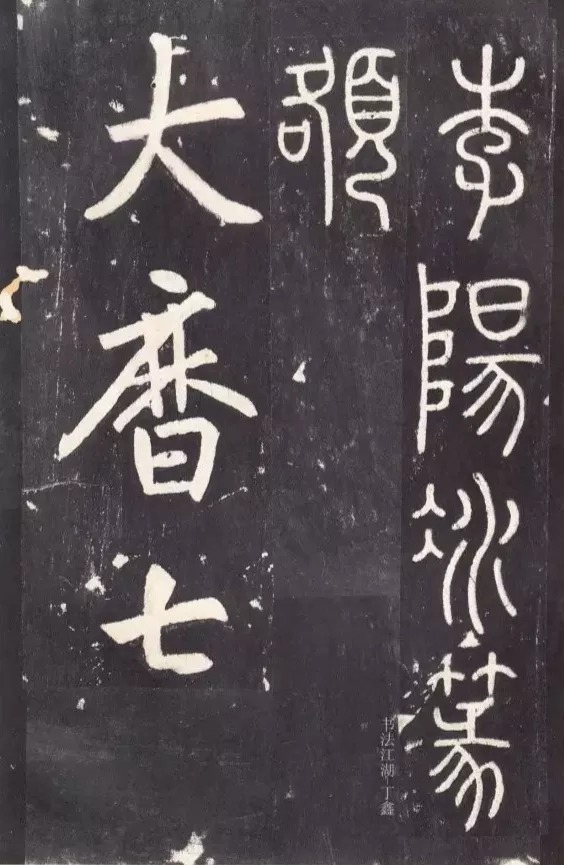 李陽冰篆
額
大曆七
书法江湖 丁鑫